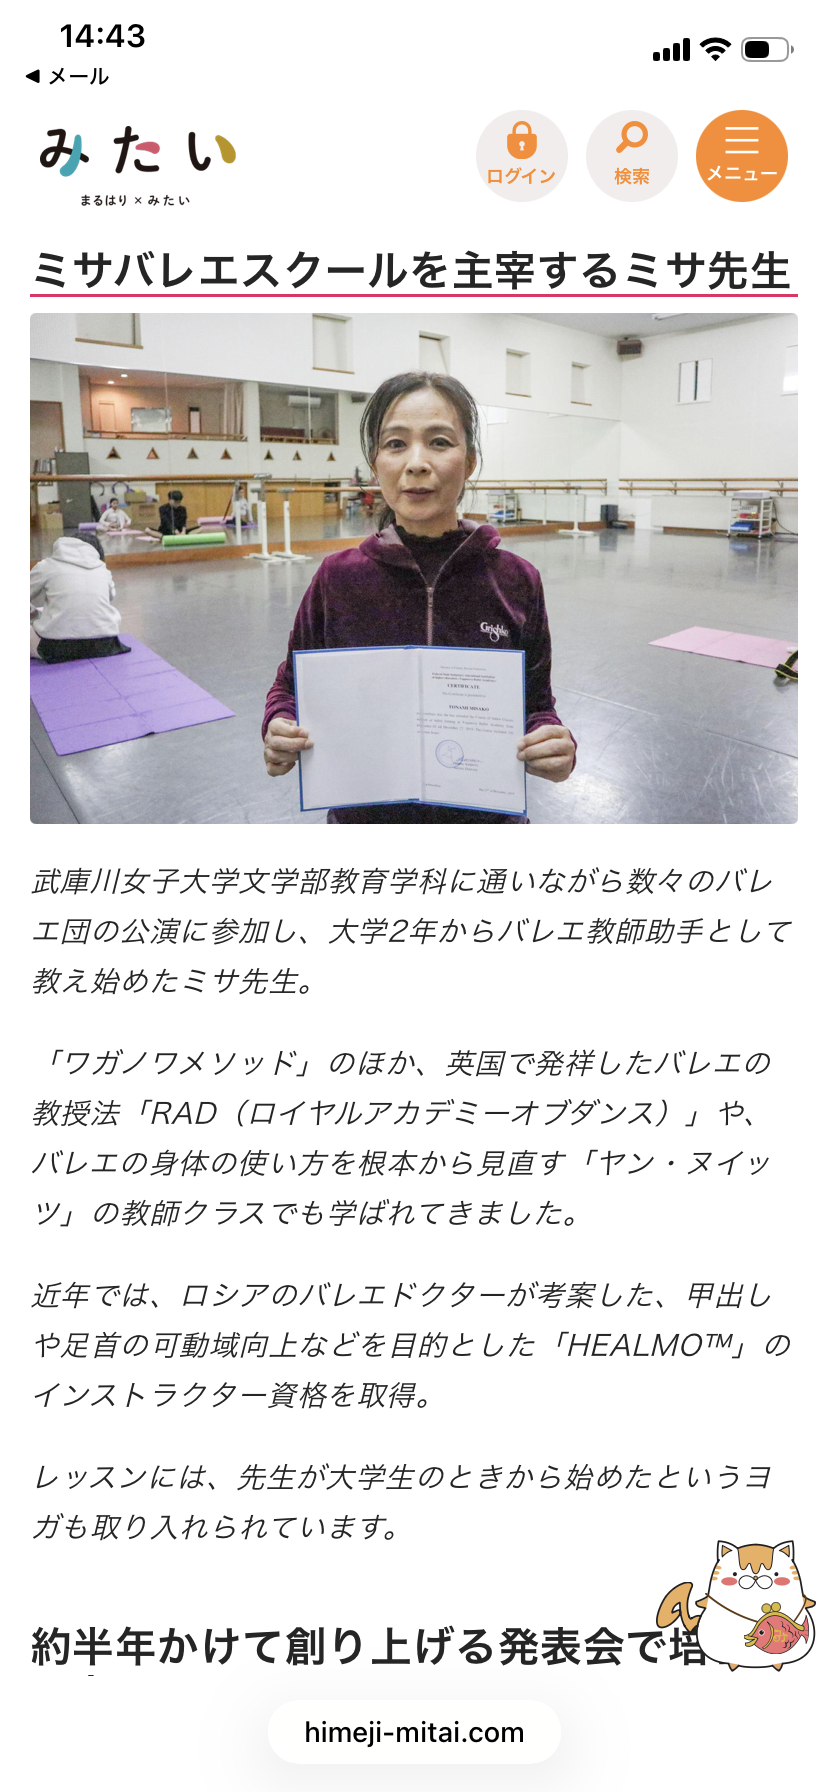 14:43
◀ メール
みたい
まるはり × みたい
ログイン
検索
メニュー
ミサバレエスクールを主宰するミサ先生
Grishko
CERTIFICATE
YONAMI MISAKO
武庫川女子大学文学部教育学科に通いながら数々のバレ
エ団の公演に参加し、大学2年からバレエ教師助手として
教え始めたミサ先生。
「ワガノワメソッド」のほか、英国で発祥したバレエの
教授法「RAD（ロイヤルアカデミーオブダンス）」や、
バレエの身体の使い方を根本から見直す「ヤン・ヌイッ
ツ」の教師クラスでも学ばれてきました。
近年では、ロシアのバレエドクターが考案した、甲出し
や足首の可動域向上などを目的とした「HEALMO™」の
インストラクター資格を取得。
レッスンには、先生が大学生のときから始めたというヨ
ガも取り入れられています。
約半年かけて創り上げる発表会で培
himeji-mitai.com